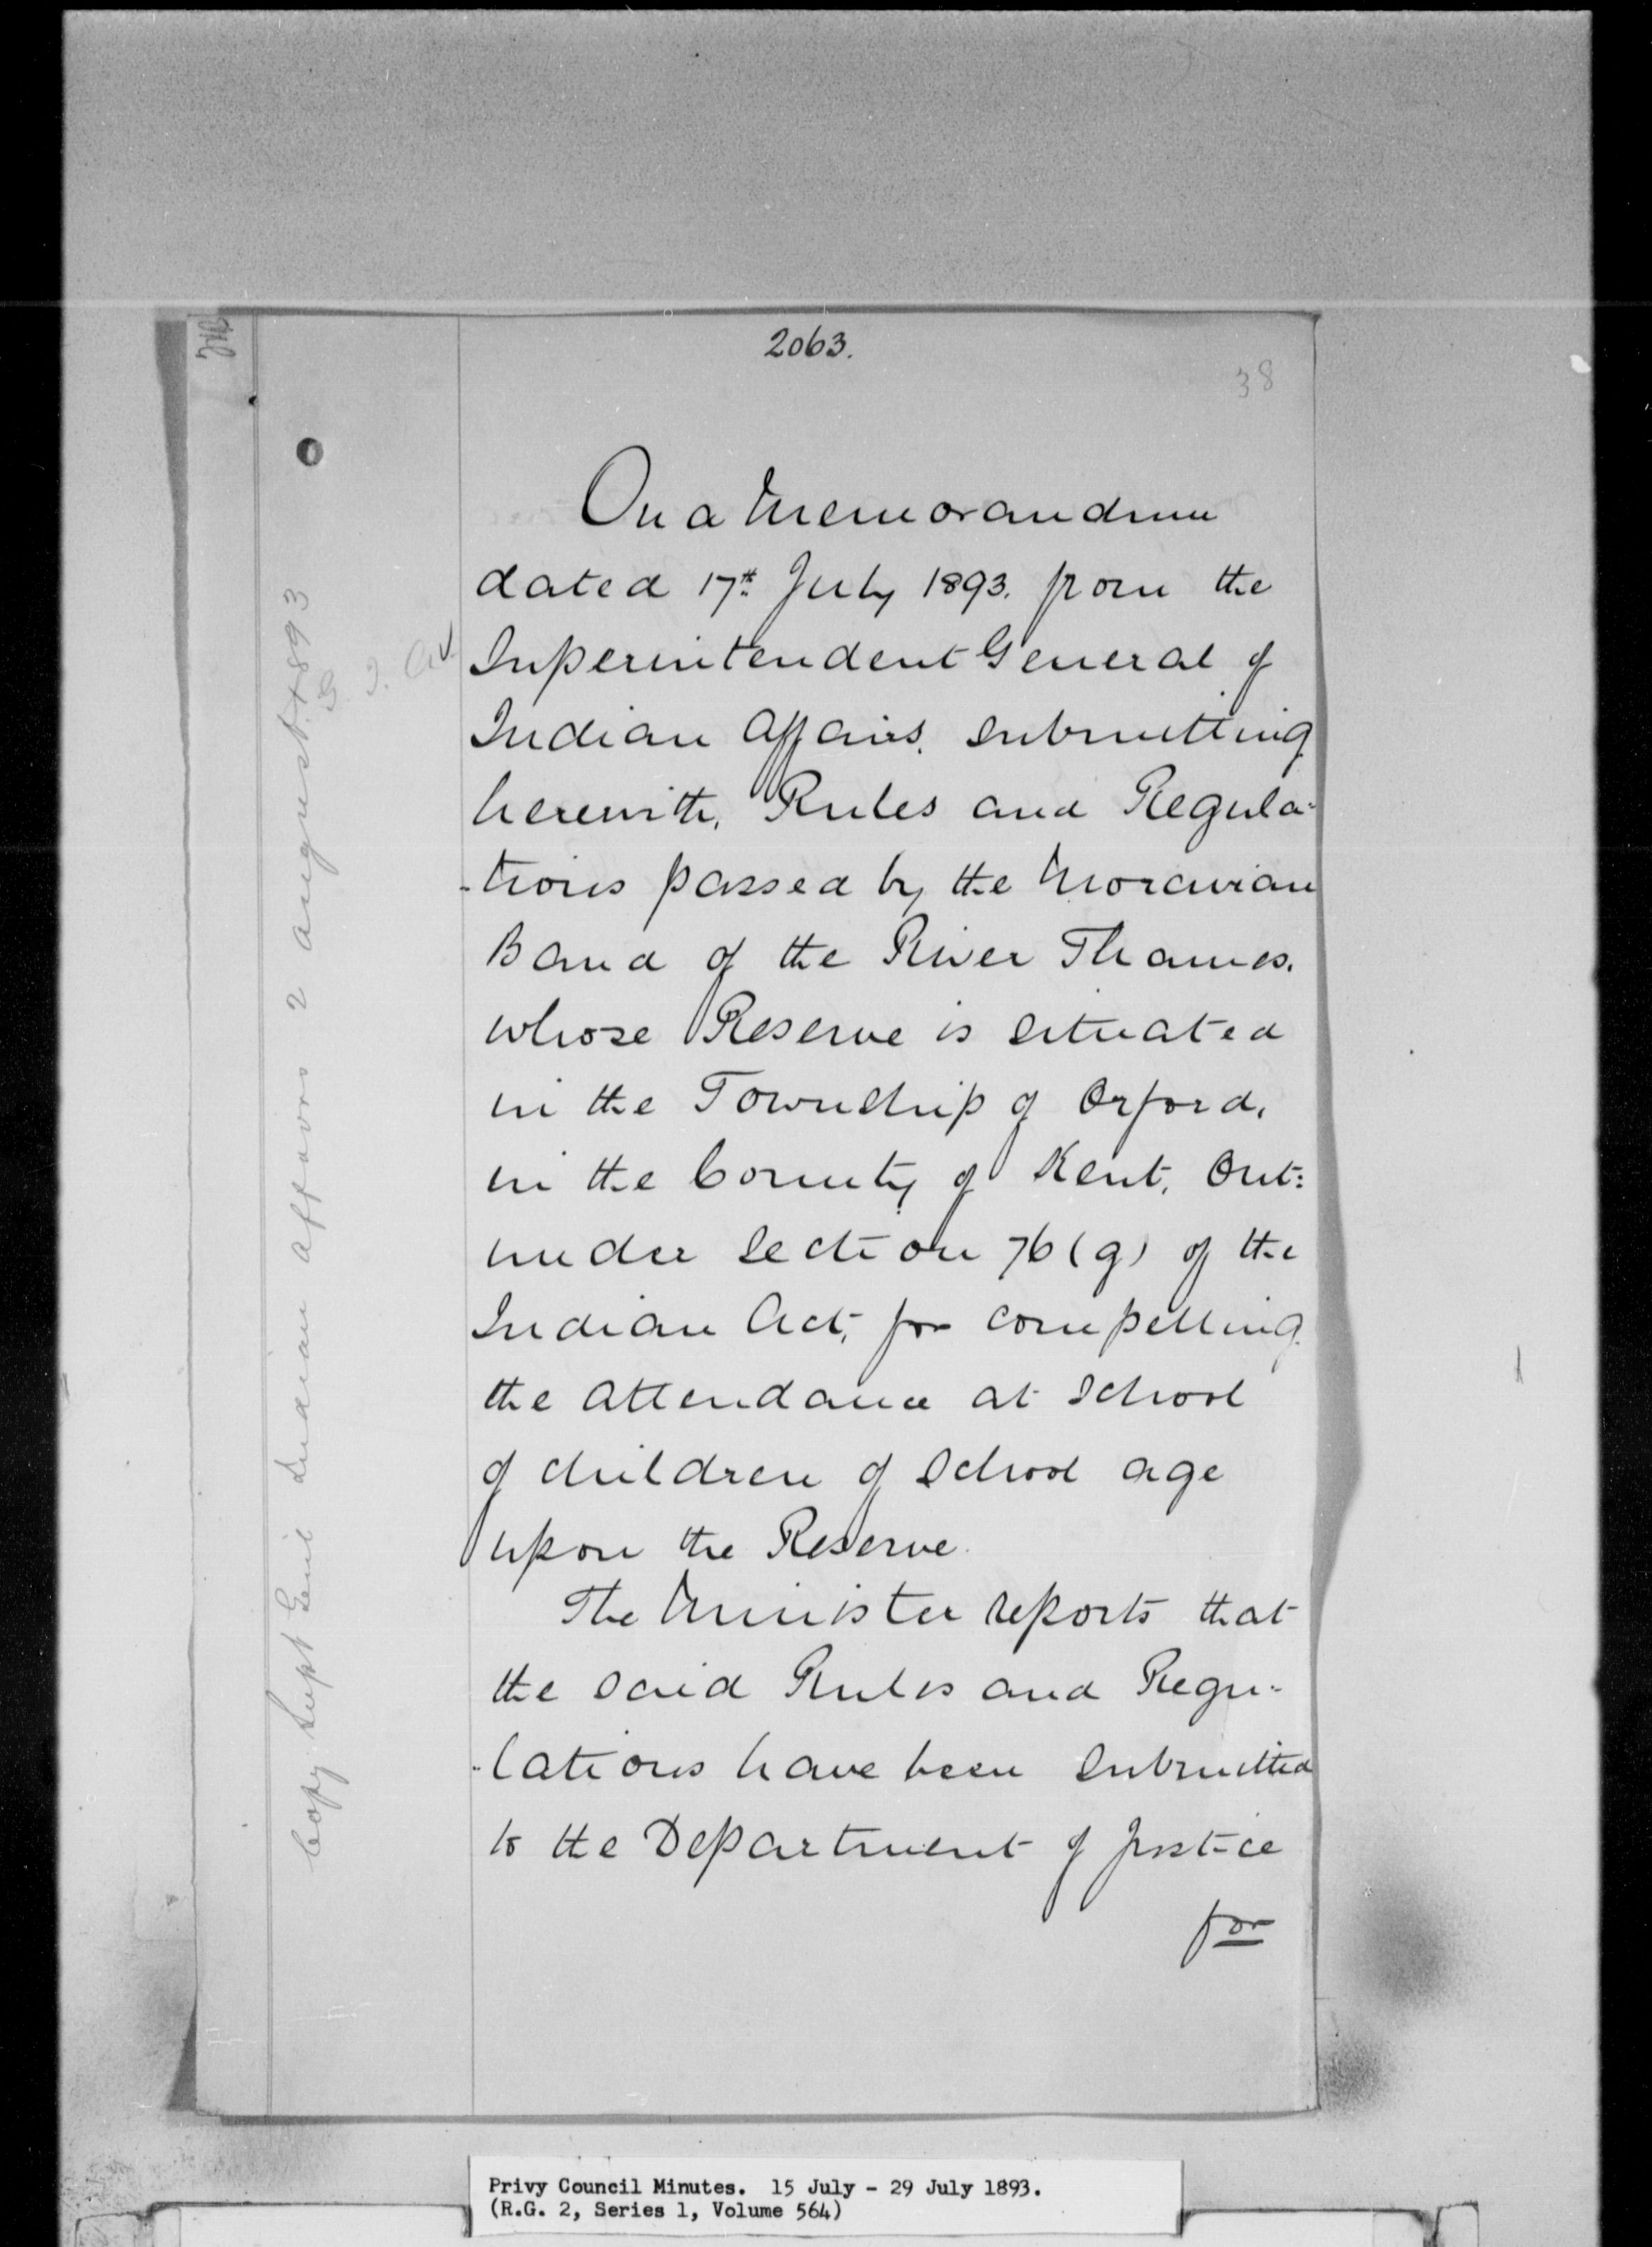 2063.
38
On a Memorandum
dated 17th July 1893. from the
Superintendent General of
Indian Affairs, submitting
herewith, Rules and Regula-
-tions passed by the Moravian
Band of the River Thames,
whose Reserve is situated
in the Township of Orford,
in the County of Kent, Ont:
under Section 76 (g) of the
Indian Act, for compelling
the attendance at School
of children of School age
upon the Reserve.
The Minister reports that
the said Rules and Regu-
-lations have been submitted
to the Department of Justice
for
Copy. Supt Genl Indian Affairs 2 August 1893
Privy Council Minutes. 15 July - 29 July 1893.
(R.G. 2, Series 1, Volume 564)